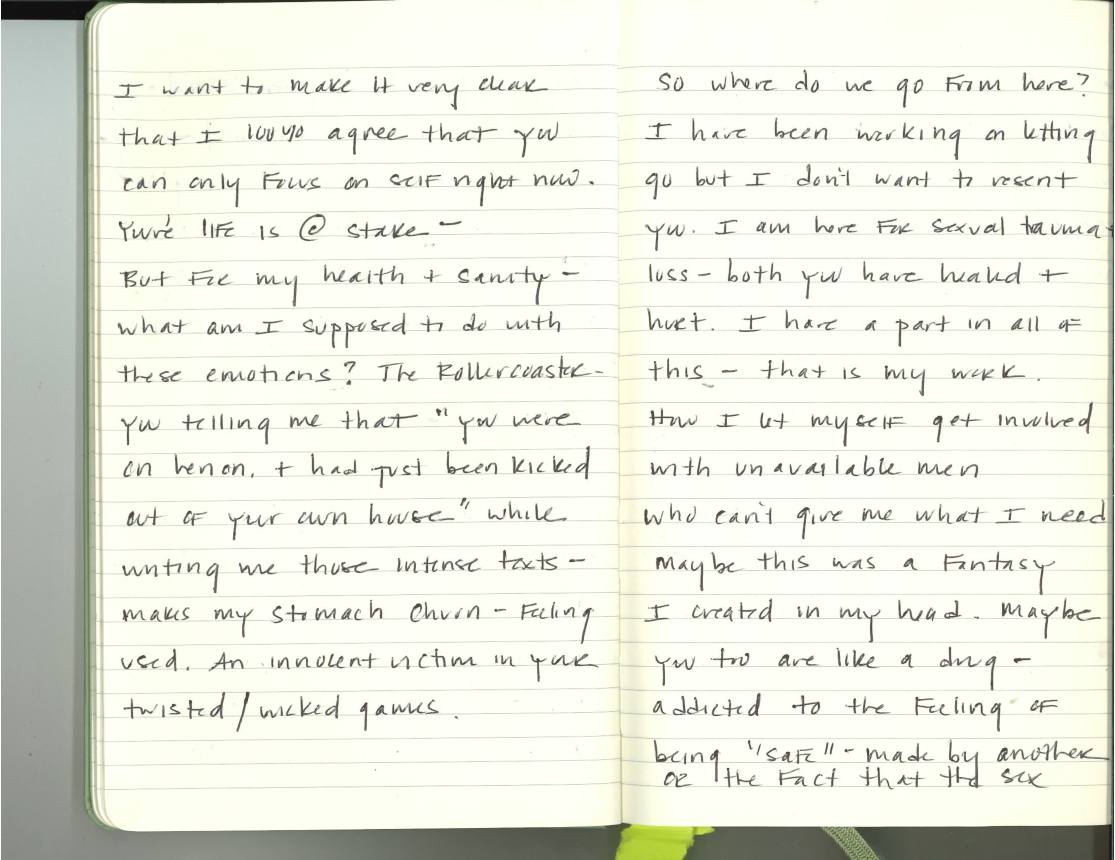 I want to make it very clear
that I 100% agree that you
can only Focus on self right now.
You're life is @ stake –
But For my health + sanity –
what am I supposed to do with
these emotions? The Rollercoaster –
you telling me that "you were
on heroin, + had just been kicked
out of your own house" while
writing me those intense texts –
makes my stomach churn – Feeling
used. An innocent victim in your
twisted / wicked games.
So where do we go From here?
I have been working on letting
go but I don't want to resent
you. I am here For sexual trauma +
loss – both you have healed +
hurt. I have a part in all of
this – that is my work.
How I let myself get involved
with unavailable men
who can't give me what I need
Maybe this was a Fantasy
I created in my head. Maybe
you too are like a drug –
addicted to the Feeling of
being "safe" – made by another
or the Fact that the sex